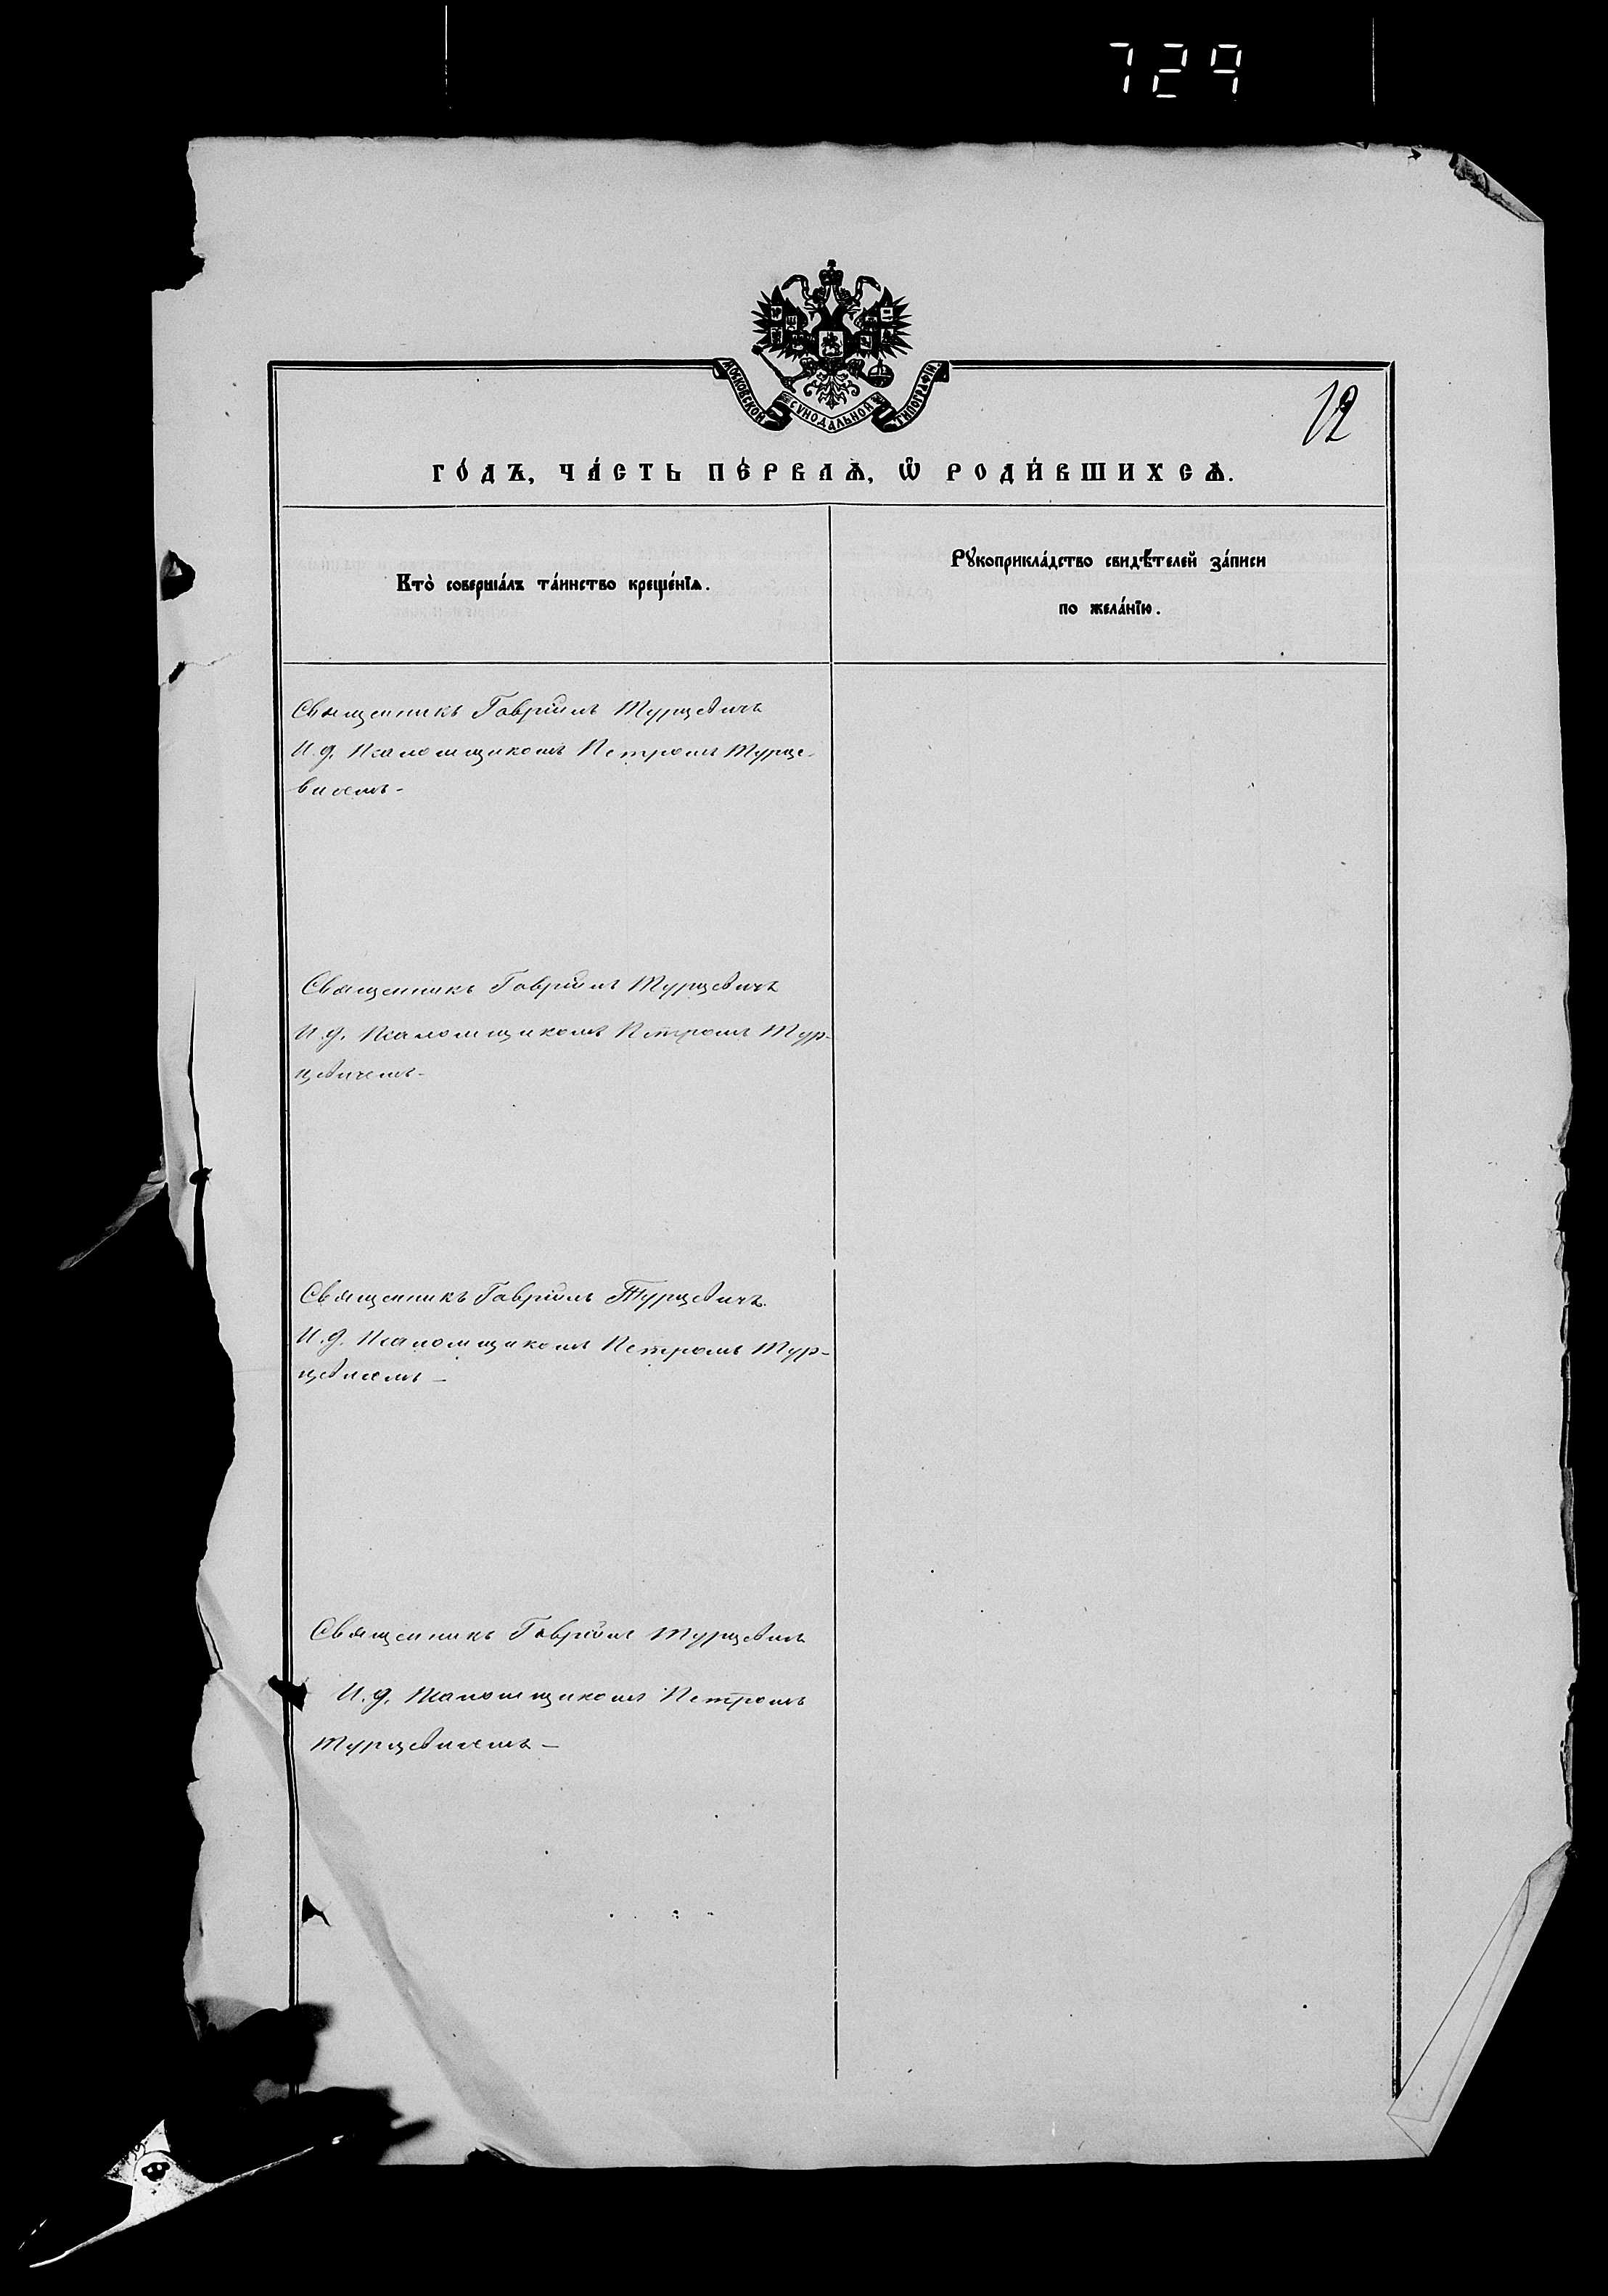 729
МОСКОВСКОЙ СѴНОДАЛЬНОЙ ТИПОГРАФІИ
12
ГО́ДЪ, ЧА́СТЬ ПЕ́РВАѦ, Ѽ РОДИ́ВШИХСѦ.
Кто̀ соверша́лъ та́инство креще́нїѧ.
Рꙋкоприкла́дство свидѣ́телей за́писи
по жела́нїю.
Священникъ Гавріилъ Турцевичъ
И. д. Псаломщикомъ Петромъ Турце-
вичемъ-
Священникъ Гавріилъ Турцевичъ
И. д. Псаломщикомъ Петромъ Тур-
цевичемъ-
Священникъ Гавріилъ Турцевичъ.
И. д. Псаломщикомъ Петромъ Тур-
цевичемъ-
Священникъ Гавріилъ Турцевичъ
И. д. Псаломщикомъ Петромъ
Турцевичемъ-